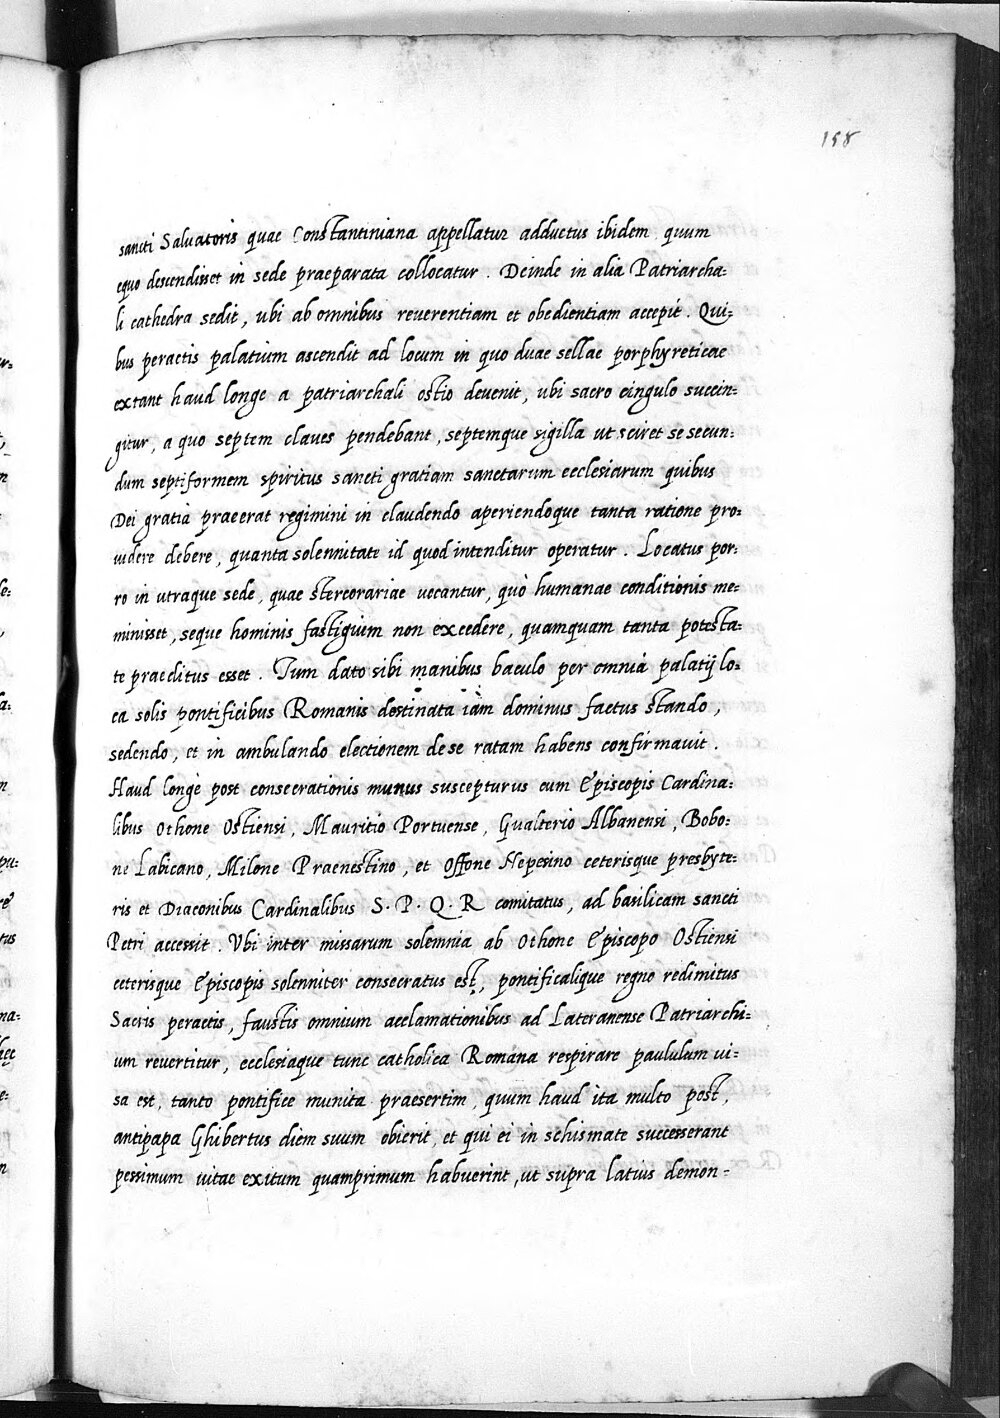 158
sancti Salvatoris quae Constantiniana appellatur adductus ibidem quum
equo descendisset in sede praeparata collocatur. Deinde in alia Patriarcha=
li cathedra sedit, ubi ab omnibus reverentiam et obedientiam accepit. Qui=
bus peractis palatium ascendit ad locum in quo duae sellae porphyreticae
extant haud longe a patriarchali ostio devenit, ubi sacro cingulo succin=
gitur, a quo septem claves pendebant, septemque sigilla ut sciret se secun=
dum septiformem spiritus sancti gratiam sanctarum ecclesiarum quibus
Dei gratia praeerat regimini in claudendo aperiendoque tanta ratione pro=
uidere debere, quanta solennitate id quod intenditur operatur. Locatus por=
ro in utraque sede, quae stercorariae uocantur, quò humanae conditionis me=
minisset, seque hominis fastigium non excedere, quamquam tanta potesta=
te praeditus esset. Tum dato sibi manibus baculo per omnia palatij lo=
ca solis pontificibus Romanis destinata iàm dominus factus stando,
sedendo, et in ambulando electionem de se ratam habens confirmauit.
Haud longè post consecrationis munus suscepturus cum Episcopis Cardina=
libus Othone Ostiensi, Mauritio Portuense, Gualterio Albanensi, Bobo=
ne Labicano, Milone Praenestino, et Offone Nepesino ceterisque presbyte=
ris et Diaconibus Cardinalibus S. P. Q. R comitatus, ad basilicam sancti
Petri accessit. Vbi inter missarum solemnia ab Othone Episcopo Ostiensi
ceterisque Episcopis solenniter consecratus est, pontificalique regno redimitus
Sacris peractis, faustis omnium acclamationibus ad Lateranense Patriarchi=
um reuertitur, ecclesiaque tunc catholica Romana respirare paululum ui=
sa est, tanto pontifice munita praesertim, quum haud ita multo post,
antipapa Ghibertus diem suum obierit, et qui ei in schismate successerant
pessimum uitae exitum quamprimum habuerint, ut supra latius demon=